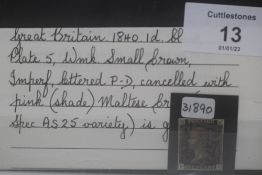 Great Britain 1840 1d Bl
Plate 5, Wmk Small Crown,
Imperf, lettered P-D, cancelled with
pink (shade) Maltese Cr
Spec AS25 variety) is g
Cuttlestones
13
01/01/22
31890